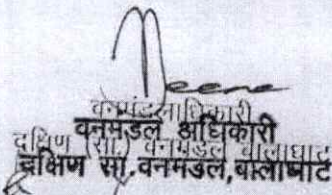 Meena
वनमंडलाधिकारी
वनमंडल अधिकारी
दक्षिण (सा.) वनमंडल बालाघाट
दक्षिण सा.वनमंडल,बालाघाट